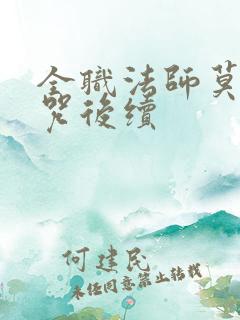 全職法師莫
咒後續
何建民
未经同意禁止转载